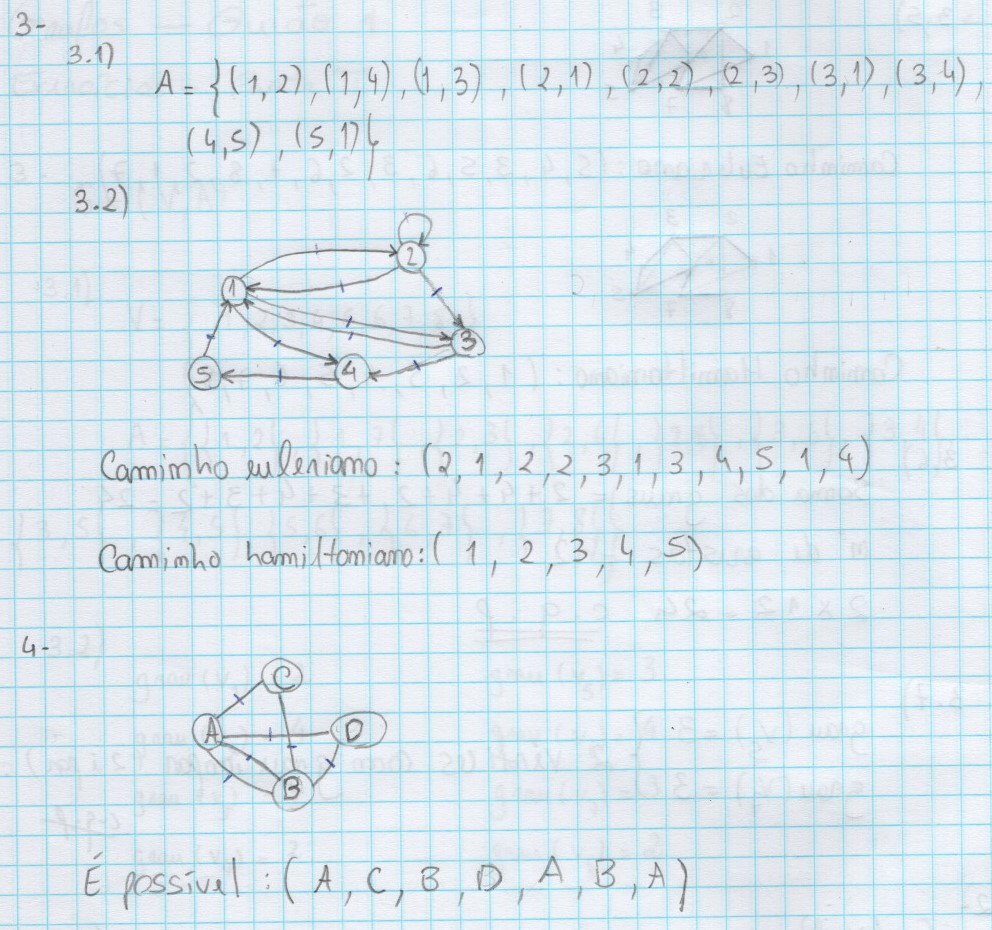 3-
3.1)
A = {(1,2), (1,4), (1,3), (2,1), (2,2), (2,3), (3,1), (3,4),
(4,5), (5,1)}
3.2)
2
1
3
5
4
Caminho euleriano : (2, 1, 2, 2, 3, 1, 3, 4, 5, 1, 4)
Caminho hamiltoniano: (1, 2, 3, 4, 5)
4-
C
A
D
B
É possível : (A, C, B, D, A, B, A)